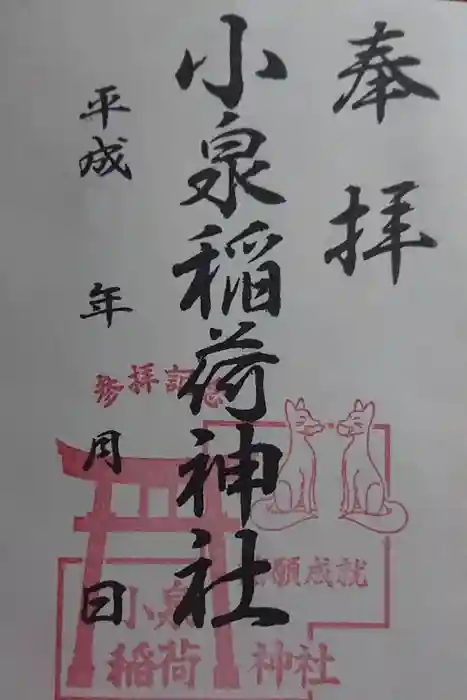 奉拝
小泉稲荷神社
平成 年 月 日
参拝記念
願成就
小泉
稲荷神社